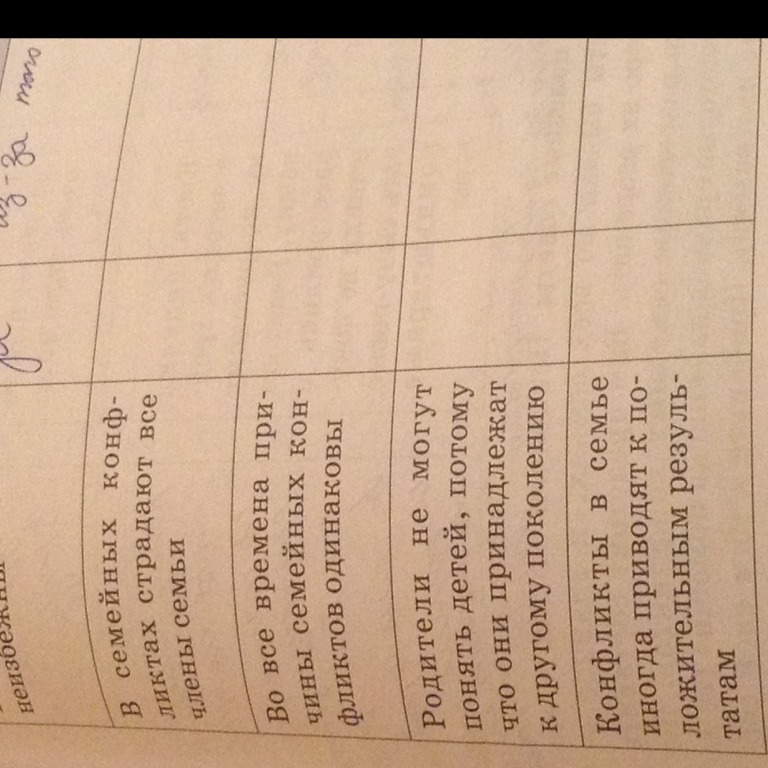 неизбежны
да
из-за того
В семейных конф-
ликтах страдают все
члены семьи
Во все времена при-
чины семейных кон-
фликтов одинаковы
Родители не могут
понять детей, потому
что они принадлежат
к другому поколению
Конфликты в семье
иногда приводят к по-
ложительным резуль-
татам